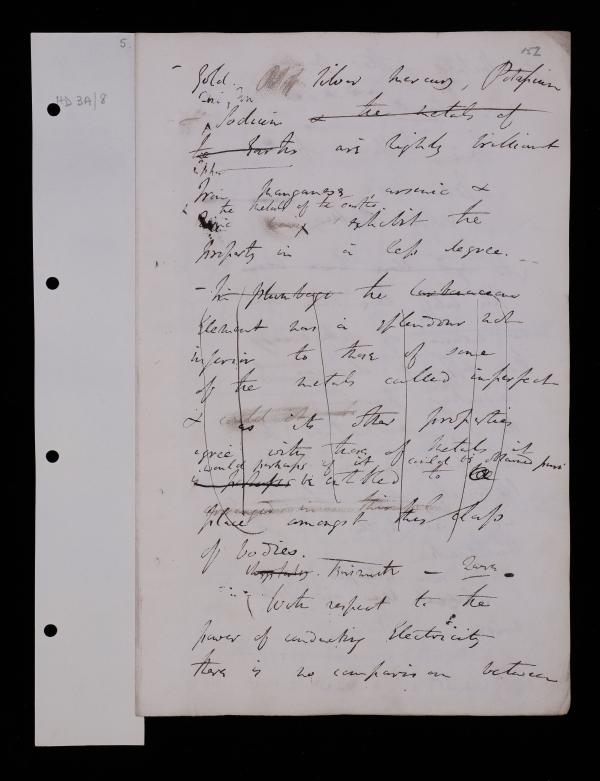 5.
152
HD 3A/8
- Gold. Silver mercury, Potassium
Sodium & the metals of
the Earths are highly brilliant
Iron, manganese, arsenic &
the metals of the earths
exhibit the
property in a less degree.
- In plumbago the carbonaceous
Element has a splendour not
inferior to those of some
of the metals called imperfect
& as its other properties
agree with those of metals it
would perhaps if it could be obtained pure
perhaps be entitled to a
place amongst this class
of bodies.
Bismuth -
With respect to the
power of conducting Electricity
there is no comparison between